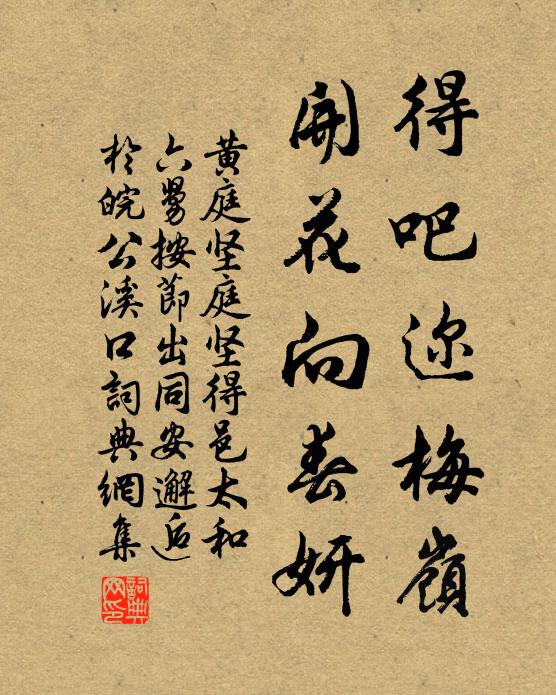 得吧迩梅嶺
開花向春妍
黄庭坚庭坚得邑太和
六舅按節出同安邂逅
於皖公溪口詞典網集
詞典网印